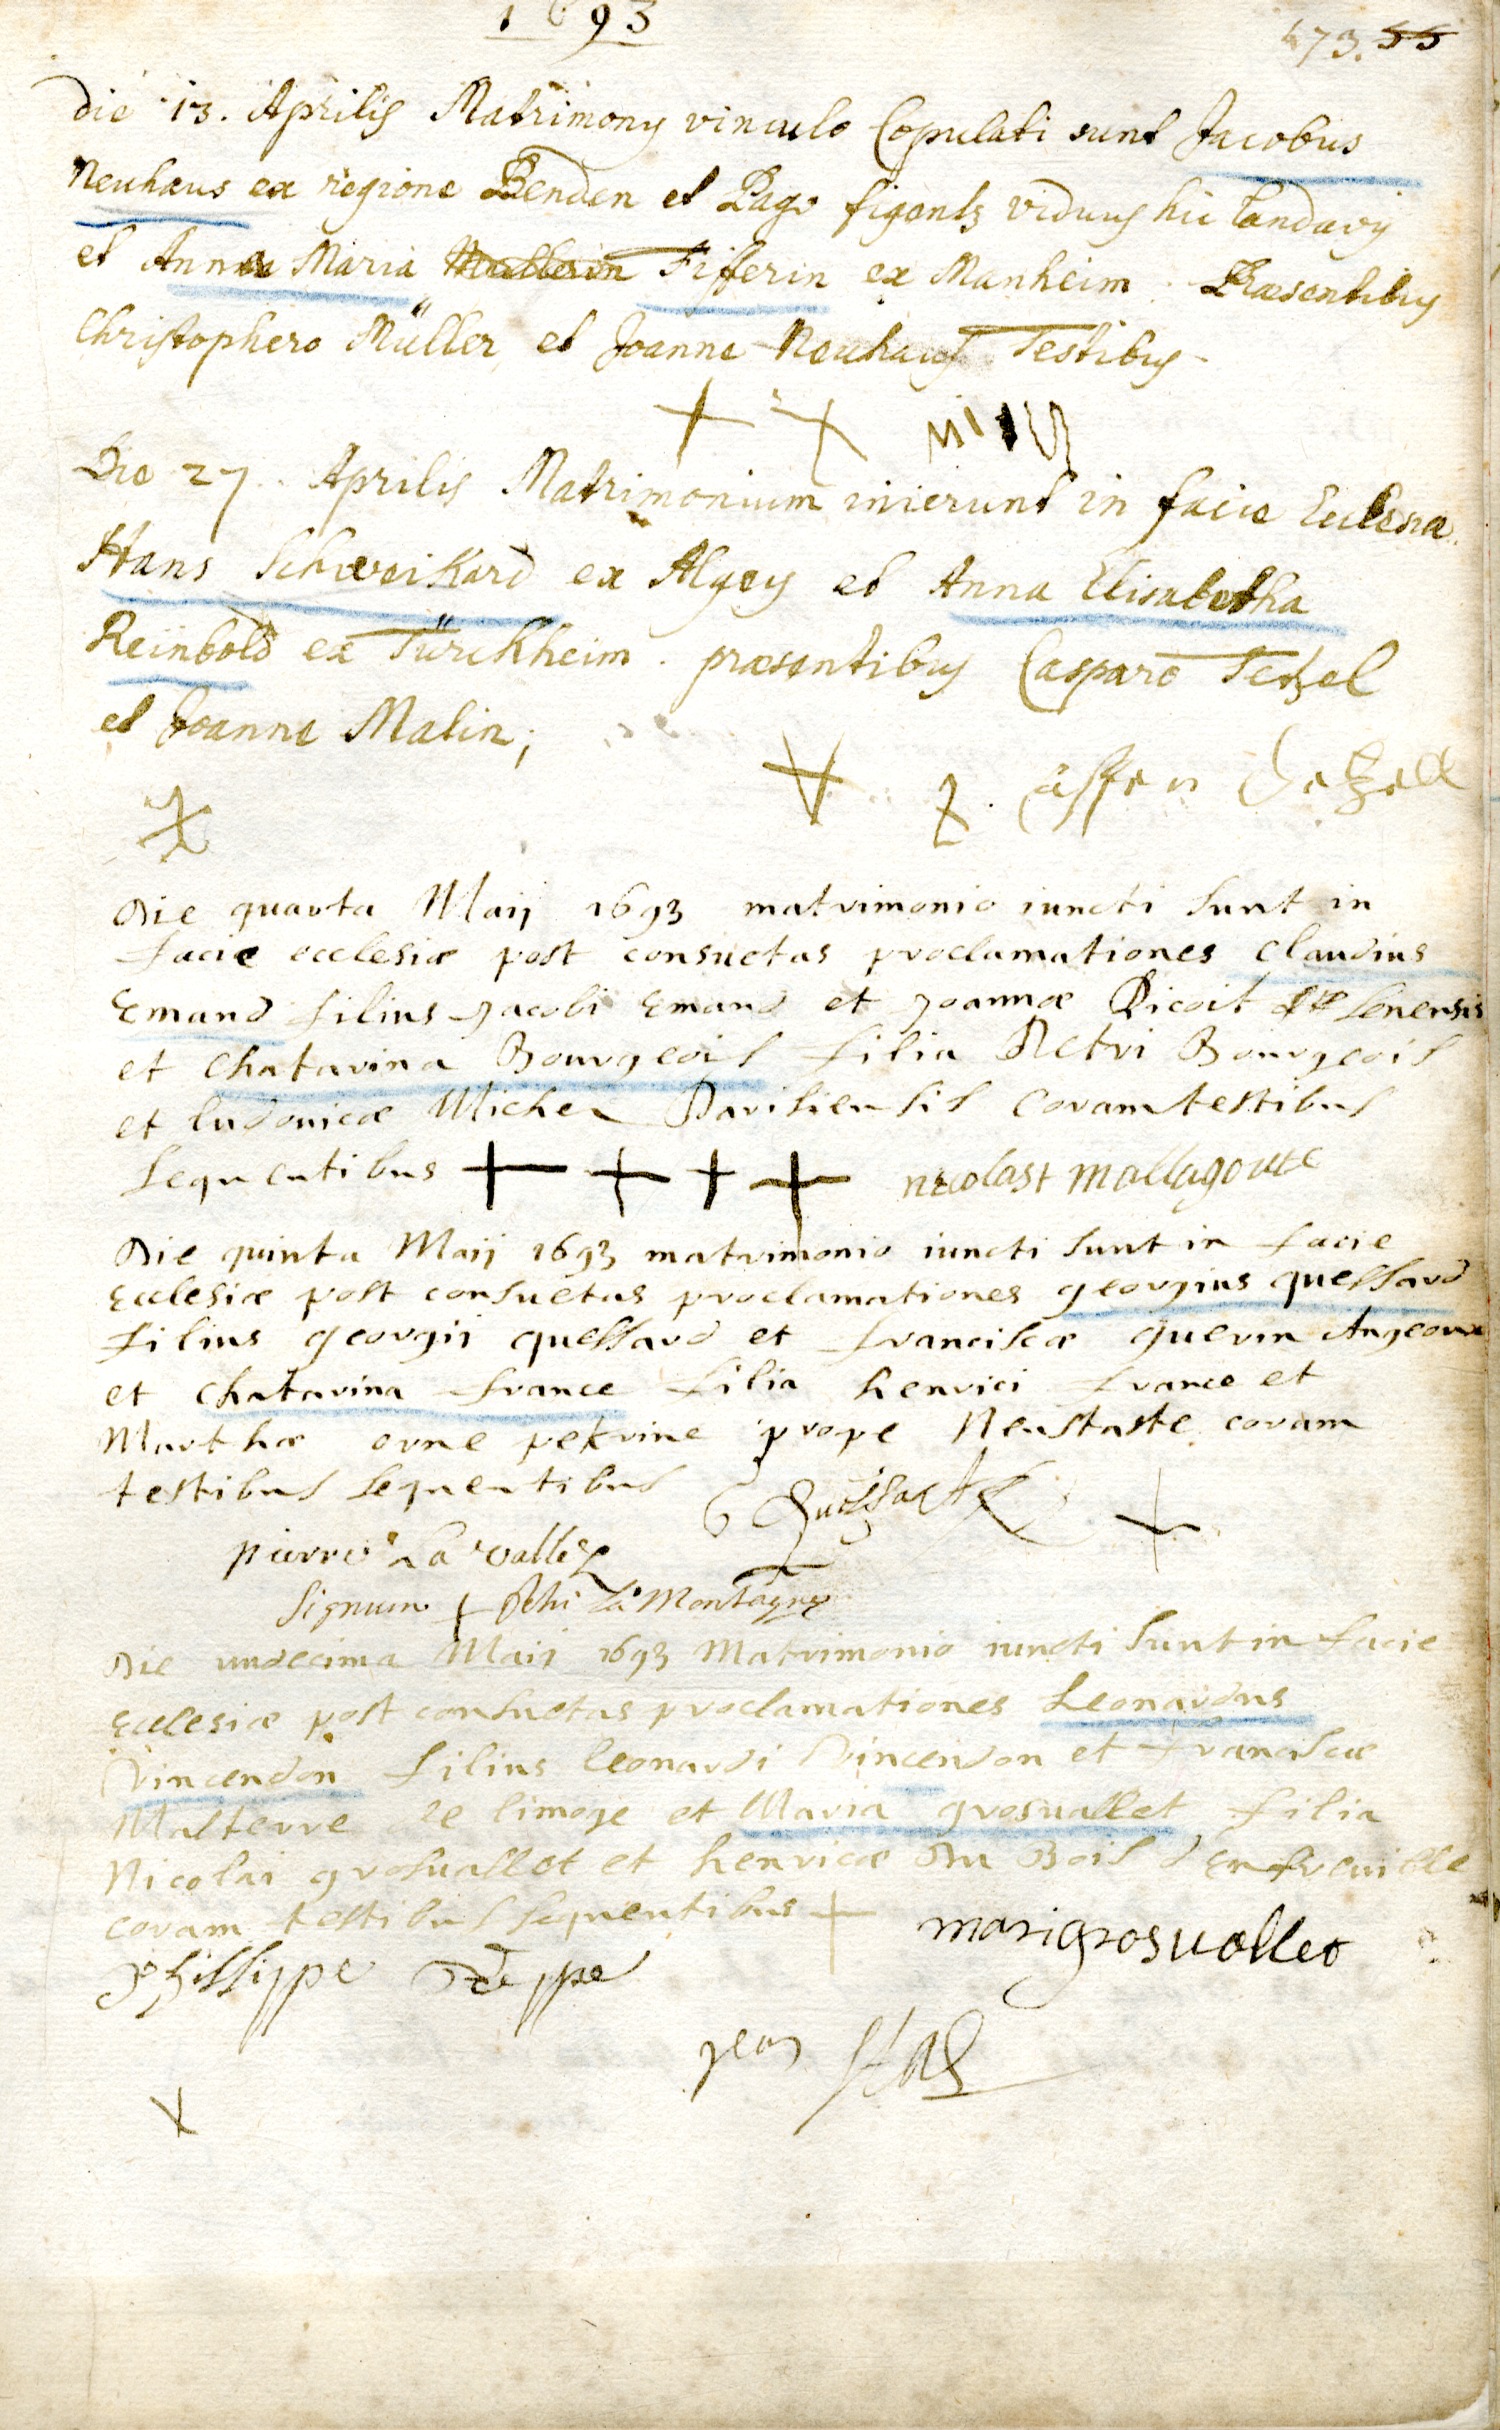 1693
473. 55
Die 13. Aprilis Matrimony vinculo Copulati sunt Jacobus
Neuhaus ex regione Benden et Pago figentz viduus hic Landavij
et Anna Maria Mullerin Fifferin ex Manheim. Præsentibus
Christophero Müller et Joanne Neuhaus Testibus
Die 27. Aprilis Matrimonium inierunt in facie Ecclesiæ
Hans Schweikard ex Algey et Anna Elisabetha
Reinbold ex Türckheim. præsentibus Casparo Tetzel
et Joanne Malin;
Die quarta Maij 1693 matrimonio iuncti sunt in
facie ecclesiæ post consuetas proclamationes Claudius
Emand filius Jacobi Emand et Joannæ Picoit senensis
et Chatarina Bourgeois filia Petri Bourgeois
et ludovicæ Michel Parisiensis Coram testibus
Sequentibus nicolast mallagoute
Die quinta Maij 1693 matrimonio iuncti sunt in facie
Ecclesiæ post consuetas proclamationes georgius quessard
filius georgii quessard et franciscæ guerin
et Chatarina france filia henrici france et
Marthæ orne pekrine prope Neustaste coram
testibus sequentibus G Quissart
pierre La valle
Signum Phi La Montagne
Die undecima Maij 1693 Matrimonio iuncti sunt in facie
Ecclesiæ post consuetas proclamationes Leonardus
Vincendon filius leonardi Vincendon et franciscæ
Malterre de limoge et Maria grosvallet filia
Nicolai grosvallet et henricæ Du Bois d'Enfreville
coram testibus sequentibus marigrosvallet
Phillippe
jean